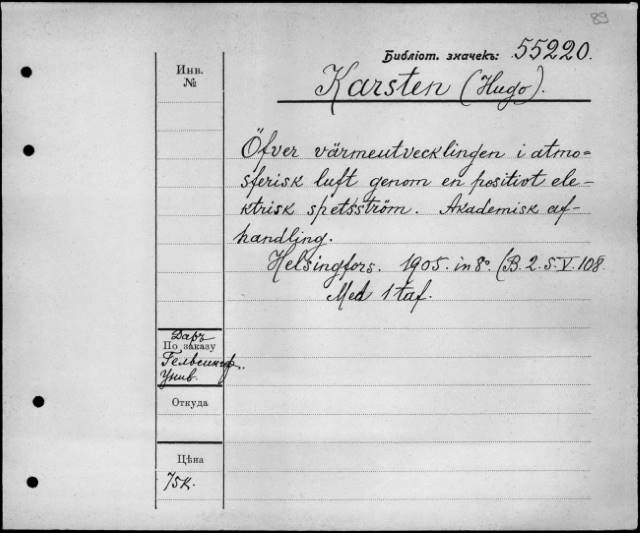 89
Библіот. значекъ: 55220.
Karsten (Hugo).
Инв.
№
Öfver värmeutvecklingen i atmo-
sferisk luft genom en positivt ele-
ktrisk spetsström. Akademisk af-
handling.
Helsingfors. 1905. in 8º. (B. 2. S. V. 108.
Med 1 taf.
Даръ
По заказу
Гельсингф.
Унив.
Откуда
Цѣна
75к.